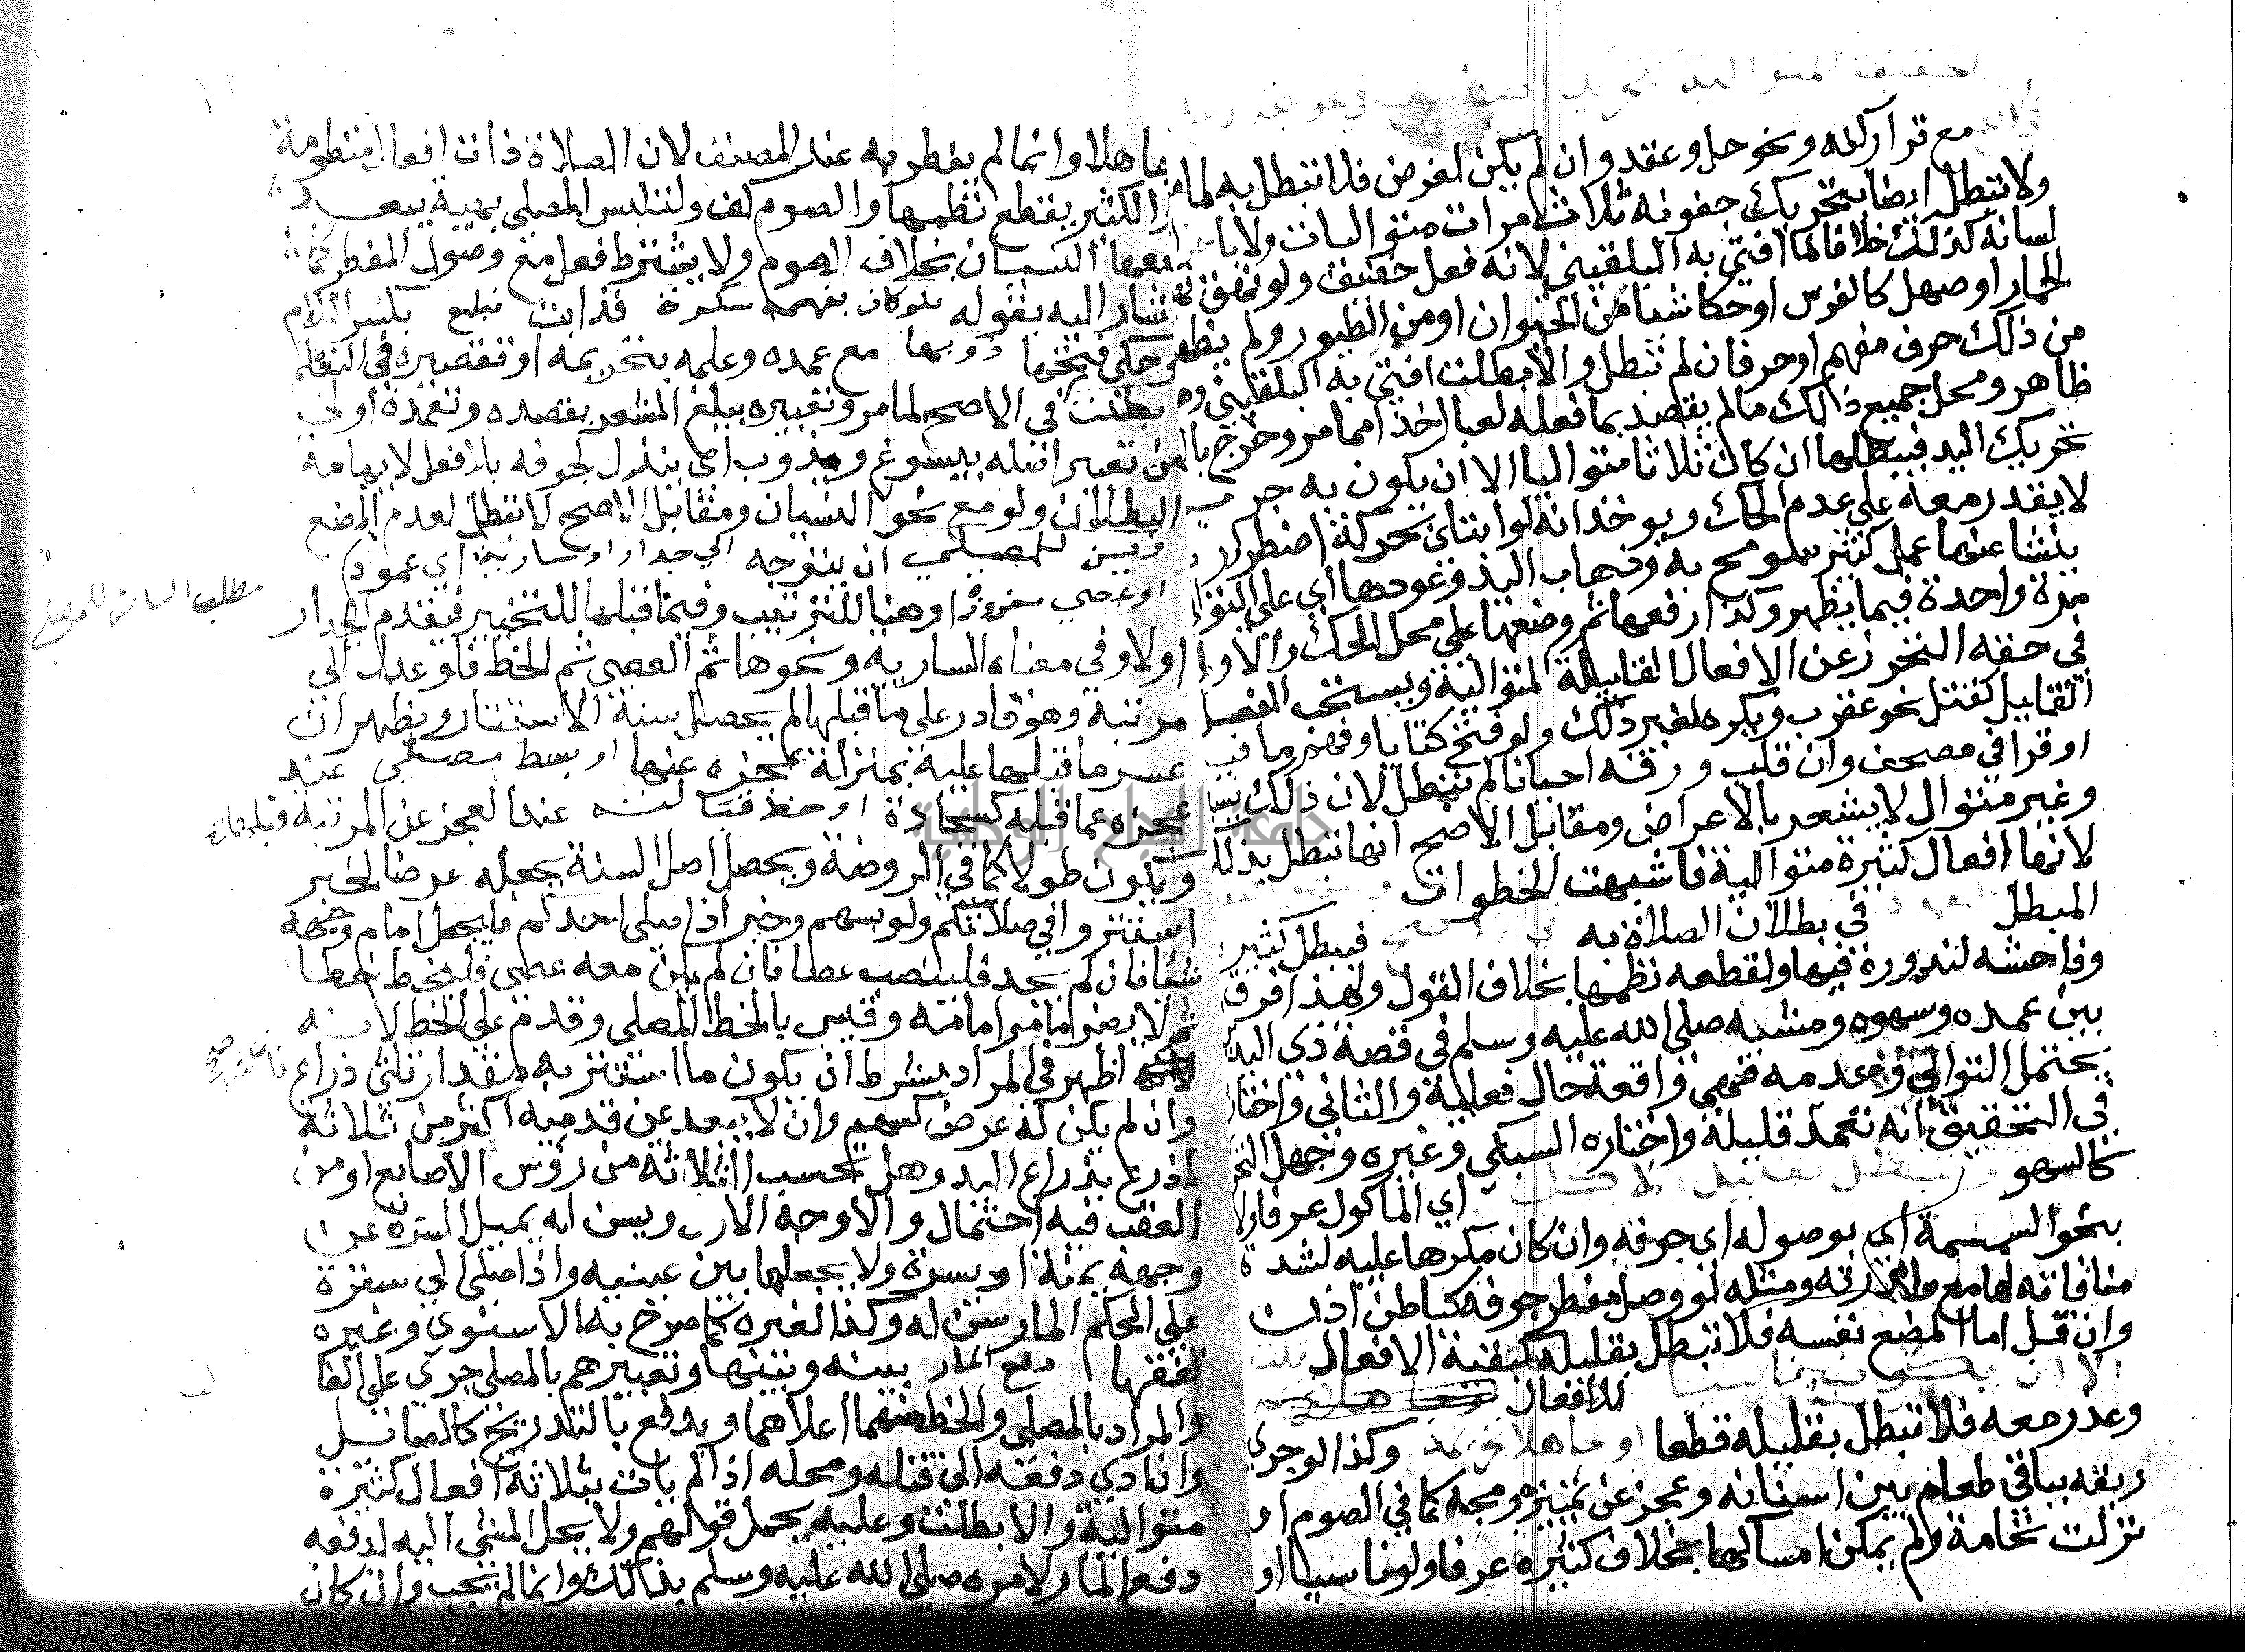 مع قرار كفه ونحو حل وعقد وان لم يكن لغرض فلا تبطل به لما مر
ولا تبطل ايضا بتحريك جفونه ثلاث مرات متواليات ولا با
لسانه كذلك خلافا لما افتى به البلقيني لانه فعل خفيف ولو نهق
الحمار او صهل كالفرس او حكا شيا من الحيوان او من الطيور ولم يظهر
من ذلك حرف مفهم او حرفان لم تبطل والا بطلت افتى به البلقيني
ظاهر ومحل جميع ذلك ما لم يقصد بما فعله لعبا اخذا مما مر وخرج بالـ
تحريك اليد فيبطلها ان كان ثلاثا متواليا الا ان يكون به جرب
لا يقدر معه على عدم الحك ويوخذ انه لو ابتلى بحركة اضطرار
ينشا عنها عمل كثير سومح به وذهاب اليد وعودها اي على التوالي
مرة واحدة فيما يظهر وكذا رفعها ثم وضعها على محل الحك والاولى
في حقه التحرز عن الافعال القليلة المتوالية ويستحب الفعل
القليل كقتل نحو عقرب ويكره لغير ذلك ولو فتح كتابا وفهم ما فيه
او قرا في مصحف وان قلب ورقه احيانا لم تبطل لان ذلك يسير
وغير متوال لا يشعر بالاعراض ومقابل الاصح انها تبطل بذلك
لانها افعال كثيرة متوالية فاشبهت الخطوات
المبطل في بطلان الصلاة به فيبطل كثيره
وفاحشه لندوره فيها ولقطعه نظمها بخلاف القول ولهذا فرق
بين عمده وسهوه ومشيه صلى الله عليه وسلم في قصة ذي اليدين
يحتمل التوالي وعدمه فهي واقعة حال فعلية والثاني واختاره
في التحقيق انه تعمد قليله واختاره السبكي وغيره وجهل التحريم
كالسهو وتبطل بقليل الاكل اي الماكول عرفا ولو
بنحو السمسمة اي بوصوله اي جوفه وان كان مكرها عليه لشدة
منافاته لها مع ندرته ومثله لو وصل مفطر جوفه كباطن اذن
وان قل اما المضغ نفسه فلا تبطل بقليله كبقية الافعال
الا ان يكون ناسيا للافعال
وعذر معه فلا تبطل بقليله قطعا او جاهلا تحريمه وكذا لو جرى
ريقه بباقي طعام بين اسنانه وعجز عن تمييزه ومجه كما في الصوم او
نزلت نخامة ولم يمكن امساكها بخلاف كثيره عرفا ولو ناسيا او
جاهلا وانما لم يفطر به عند المصنف لان الصلاة ذات افعال منظومة
والكثير يقطع نظمها والصوم كف ولتلبس المصلي بهيئة يبعد
معها النسيان بخلاف الصوم ولا يشترط فعل مع وصول المفطر كما
اشار اليه بقوله فلو كان بفمه سكرة فذابت فبلع بكسر اللام
وحكي فتحها ذوبها مع عمده وعلمه بتحريمه او تقصيره في التعلم
بطلت في الاصح لما مر وتعبيره ببلع المشعر بقصده وتعمده اولى
من تعبير اصله بيسوغ ويذوب اي ينزل لجوفه بلا فعل لايهامه
البطلان ولو مع نحو النسيان ومقابل الاصح لا تبطل لعدم المضغ
ويسن للمصلي ان يتوجه الى جدار او سارية اي عمود
مطلب الساتر للمصلي
او عصى مغروزة او هنا للترتيب وفيما قبلها للتخيير فيقدم الجدار
اولا وفي معناه السارية ونحوها ثم العصى ثم الخط فلو عدل الى
مرتبة وهو قادر على ما قبلها لم يحصل سنة الاستتار ويظهر ان
عسر ما قبلها عليه بمنزلة عجزه عنها او بسط مصلى عند
عجزه عما قبله كسجادة او خط قبالته عند العجز عن المرتبة قبلها
ويكون طولا كما في الروضة ويحصل اصل السنة بجعله عرضا لخبر
استتروا في صلاتكم ولو بسهم وخبر اذا صلى احدكم فليجعل امام وجهه
شيئا فان لم يجد فلينصب عصا فان لم يكن معه عصى فليخط خطا
ثم لا يضره ما مر امامه وقيس بالخط المصلى وقدم على الخط لانه
اظهر في المراد بشرط ان يكون ما استتر به مقدار ثلثي ذراع
وان لم يكن له عرض كسهم وان لا يبعد عن قدميه اكثر من ثلاثة
اذرع بذراع اليد وهل تحسب الثلاثة من رؤس الاصابع او من
العقب فيه احتمال والاوجه الاول ويسن ان يميل السترة عن
وجهه يمنة او يسرة ولا يجعلها بين عينيه واذا صلى الى سترة
على الحكم المار سن له وكذا لغيره كما صرح به الاسنوي وغيره
دفع المار بينه وبينها وتعبيرهم بالمصلي جرى على الغا
والمراد بالمصلى والخط منهما اعلاهما ويدفع بالتدريج كالصائل
وان ادى دفعه الى قتله ومحله اذا لم يات بثلاثة افعال كثيرة
متوالية والا بطلت وعليه يحمل قولهم ولا يحل المشي اليه لدفعه
دفع المار لامره صلى الله عليه وسلم بذلك وانما لم يجب وان كان